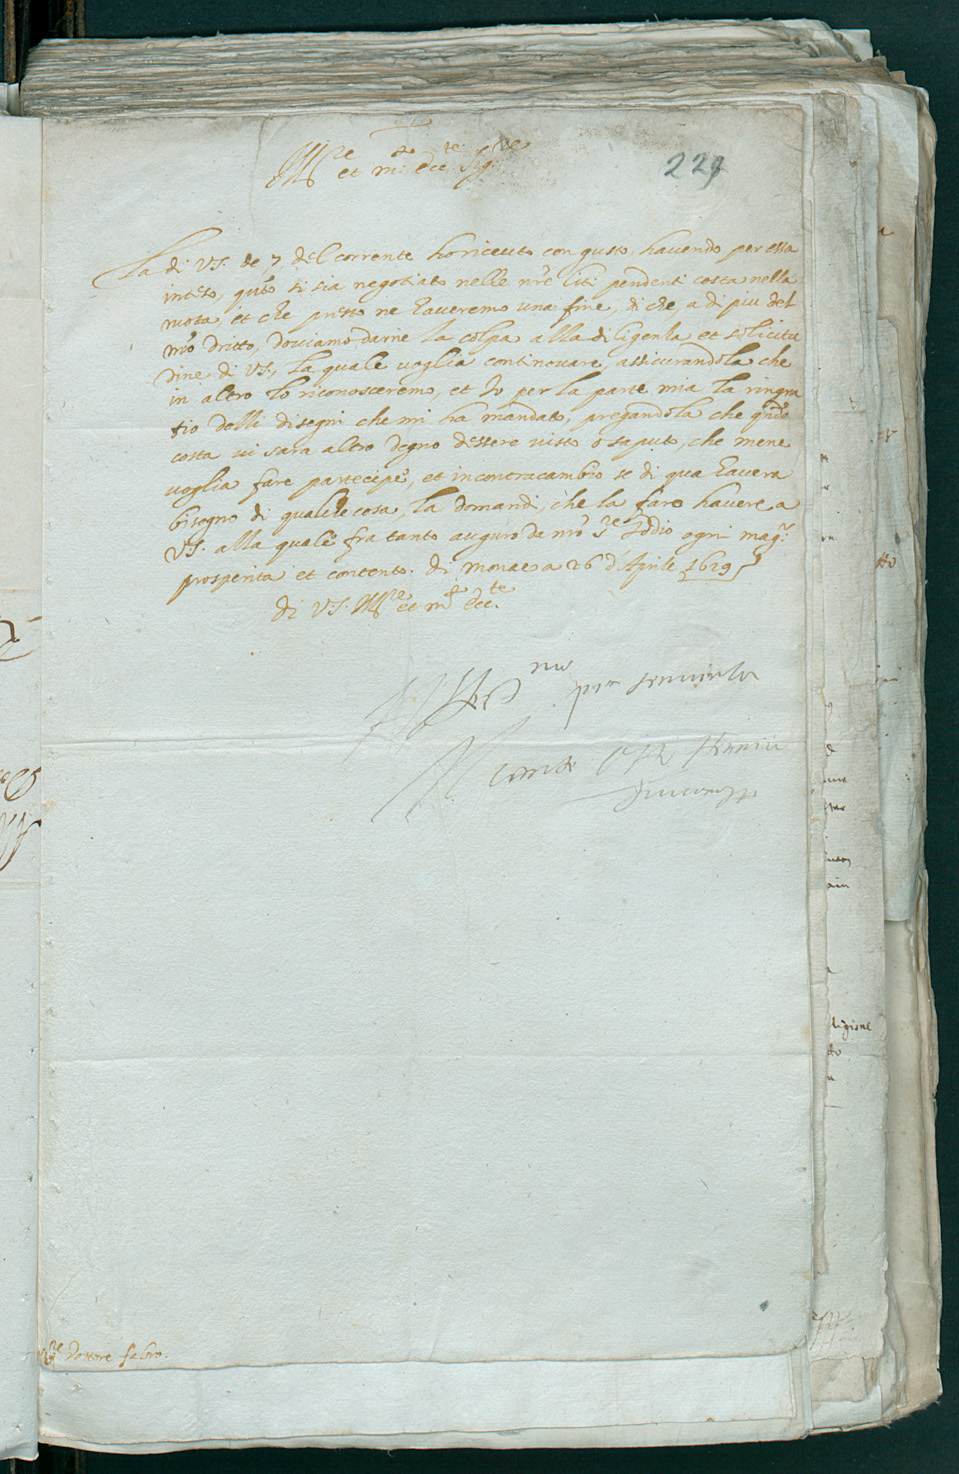 229
Ill.re et m.o ecc.te Sig.re
La di V.S. de 7 del corrente ho riceuto con gusto, havendo per essa
inteso, q.to si sia negotiato nelle n're liti pendenti costa nella
ruota, et che presto ne haveremo una fine, di che, a di piu del
n'ro dritto, doviamo darne la colpa alla diligenza et solicitu
dine di V.S., la quale voglia continovare, assicurandola che
in altro lo riconosceremo, et Io per la parte mia la ringra
tio delli disegni che mi ha mandato, pregandola che q.do
costa vi sara altro degno d'essere visto o saputo, che mene
voglia fare partecipe, et incontracambio se di qua havera
bisogno di qualche cosa, la domandi, che la faro havere a
V.S. alla quale fra tanto auguro da n'ro S.re Iddio ogni mag.r
prosperita et contento. di Monaco a 26 d'Aprile 1629
di V.S. Ill.re et m.o Ecc.te
Aff.mo per servirla
Il conte
Sig.r Dottore fabro.